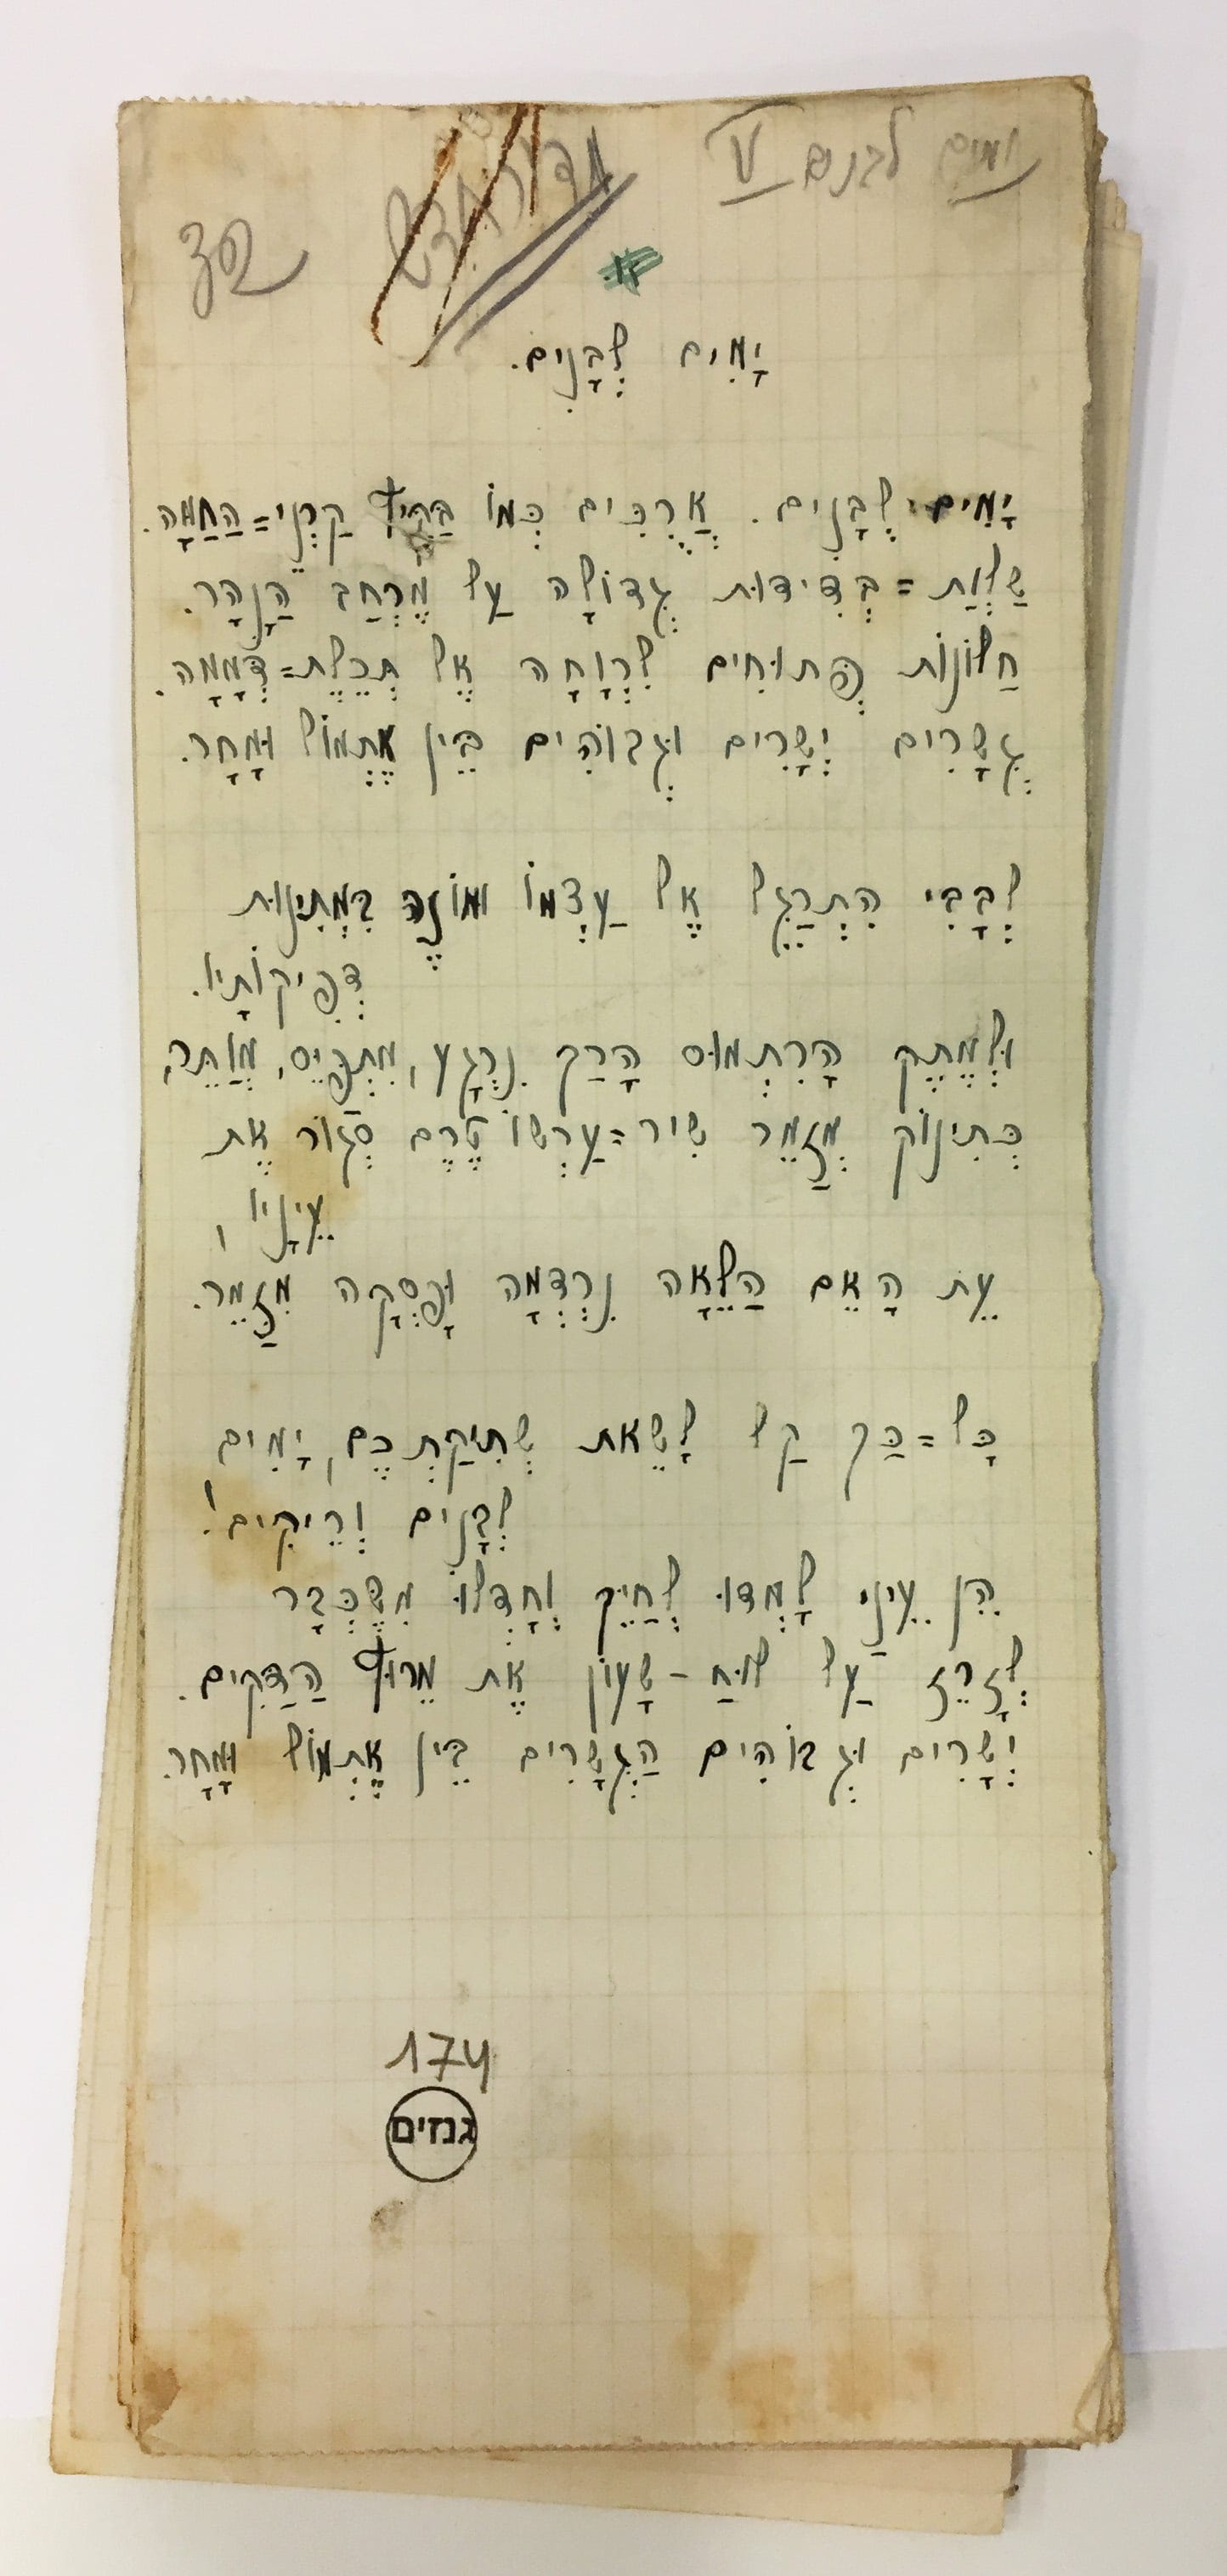 ימים לבנים V
יָמִים לְבָנִים.
יָמִים לְבָנִים. אֲרֻכִּים כְּמוֹ בַּקַּיִץ קַרְנֵי=הַחַמָּה.
שַׁלְוַת=בְּדִידוּת גְּדוֹלָה עַל מֶרְחַב הַנָּהָר.
חַלּוֹנוֹת פְּתוּחִים לִרְוָחָה אֶל תְּכֵלֶת=דְּמָמָה.
גְּשָׁרִים יְשָׁרִים וּגְבוֹהִים בֵּין אֶתְמוֹל וּמָחָר.
לְבָבִי הִתְרַגֵּל אֶל עַצְמוֹ וּמוֹנֶה בִּמְתִינוּת
דְּפִיקוֹתָיו.
וּלְמֶתֶק הָרִתְמוּס הָרַךְ נִרְגָּע, מִתְפַּיֵּס, מְוַתֵּר,
כְּתִינוֹק מְזַמֵּר שִׁיר=עַרְשׂוֹ טֶרֶם סְגוֹר אֶת
עֵינָיו,
עֵת הָאֵם הַלֵּאָה נִרְדְּמָה וּפָסְקָה מִזַּמֵּר.
כָּל=כַּךְ קַל לָשֵׂאת שְׁתִיקַתְכֶם, יָמִים
לְבָנִים וְרֵיקִים!
הֵן עֵינַי לָמְדוּ לְחַיֵּךְ וְחָדְלוּ מִשֶּׁכְּבָר
לְזָרֵז עַל לוּחַ-שָׁעוֹן אֶת מֵרוּץ הַדַּקִּים.
יְשָׁרִים וּגְבוֹהִים הַגְּשָׁרִים בֵּין אֶתְמוֹל וּמָחָר.
174
גנזים